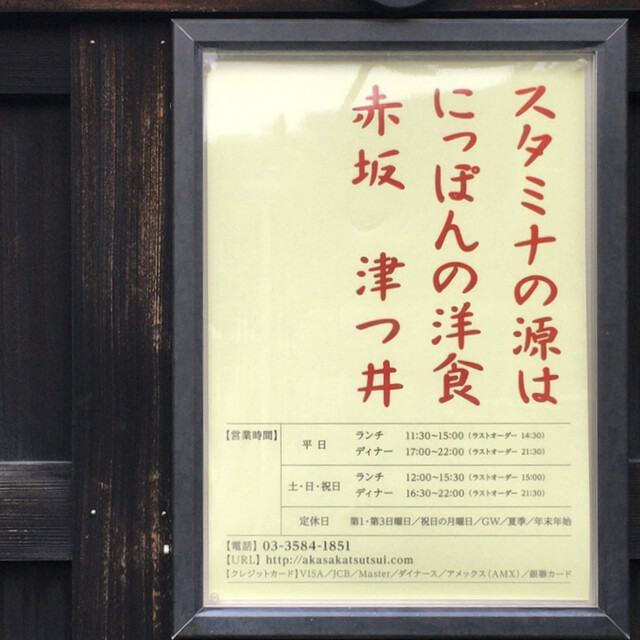 スタミナの源は
にっぽんの洋食
赤坂 津つ井
【営業時間】
平日 ランチ 11:30~15:00 (ラストオーダー 14:30)
ディナー 17:00~22:00 (ラストオーダー 21:30)
土・日・祝日 ランチ 12:00~15:30 (ラストオーダー 15:00)
ディナー 16:30~22:00 (ラストオーダー 21:30)
定休日 第1・第3日曜日/祝日の月曜日/GW/夏季/年末年始
【電話】03-3584-1851
【URL】http://akasakatsutsui.com
【クレジットカード】VISA/JCB/Master/ダイナース/アメックス(AMX)/銀聯カード